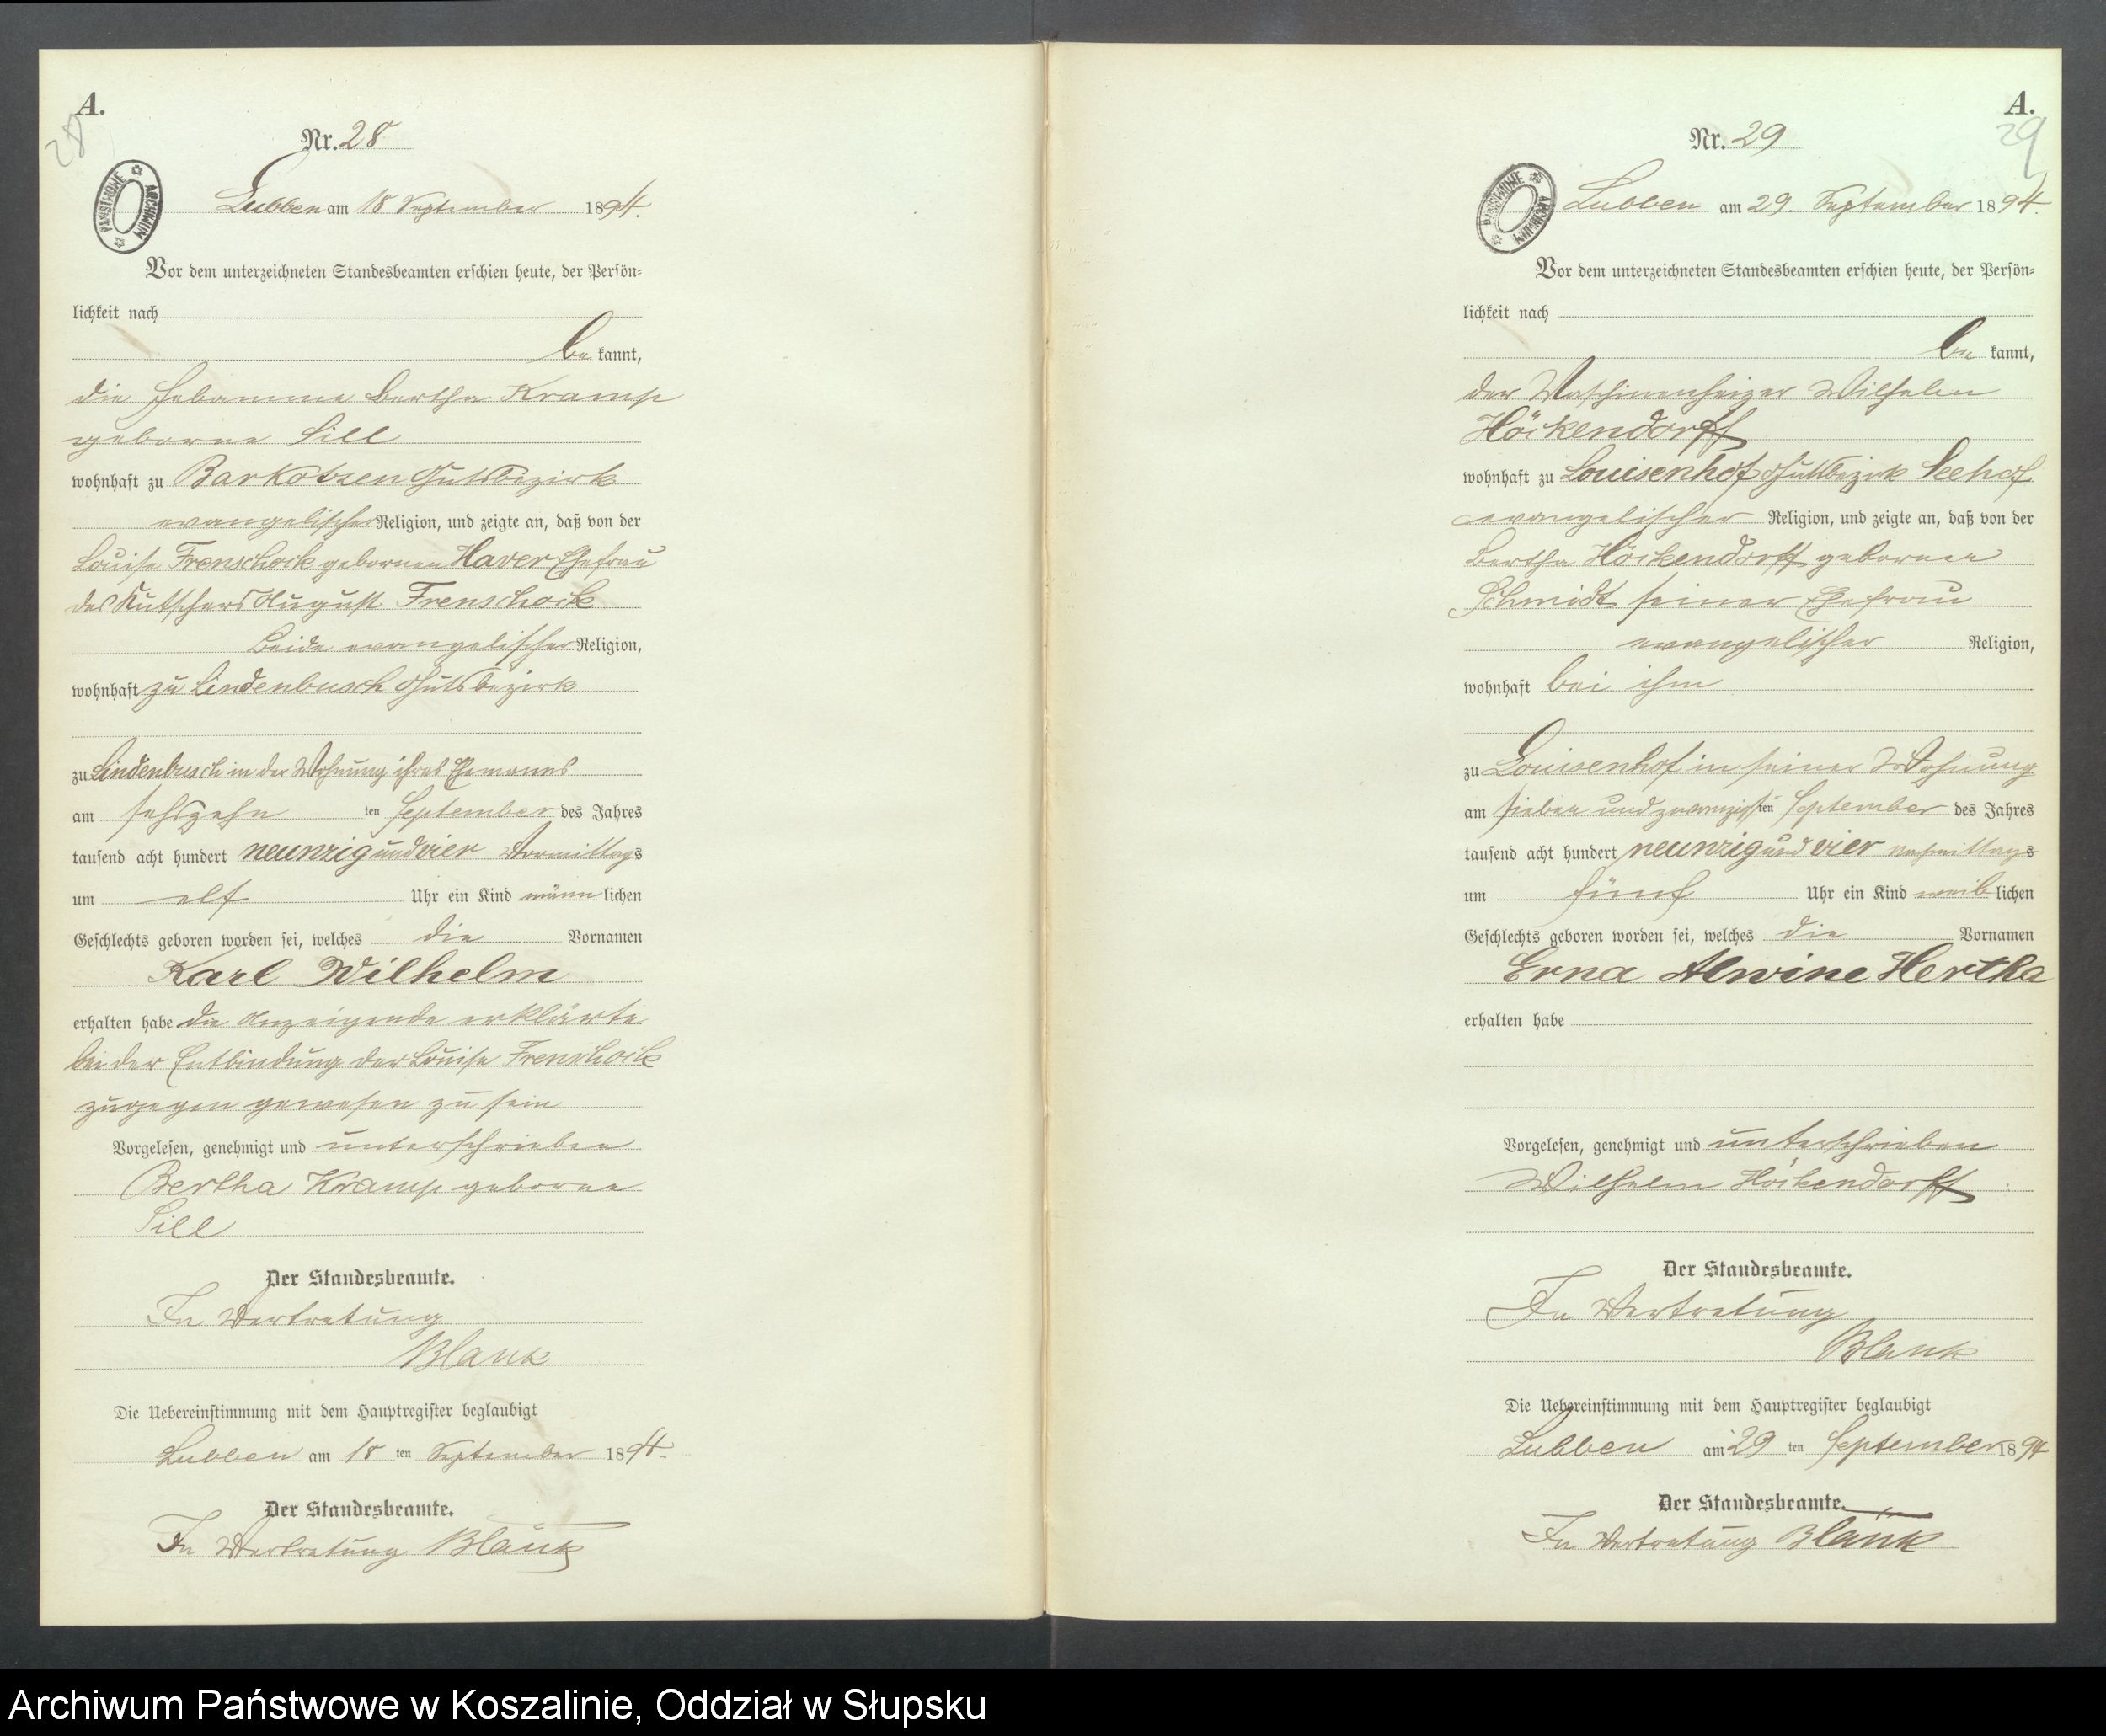 A.
28
Nr. 28
PAŃSTWOWE ARCHIWUM
Lubben am 18 September 1894.
Vor dem unterzeichneten Standesbeamten erschien heute, der Persön-
lichkeit nach
be kannt,
die Hebamme Bertha Kramp
geborne Sill
wohnhaft zu Barkotzen Gutsbezirk
evangelischer Religion, und zeigte an, daß von der
Louise Frenschock gebornen Haver Ehefrau
des Kutschers August Frenschock
beide evangelischer Religion,
wohnhaft zu Lindenbusch Gutsbezirk
zu Lindenbusch in der Wohnung ihres Ehemannes
am sechszehn ten September des Jahres
tausend acht hundert neunzig und vier Vormittags
um elf Uhr ein Kind männlichen
Geschlechts geboren worden sei, welches die Vornamen
Karl Wilhelm
erhalten habe die Anzeigende erklärte
bei der Entbindung der Louise Frenschock
zugegen gewesen zu sein
Vorgelesen, genehmigt und unterschrieben
Bertha Kramp geborne
Sill
Der Standesbeamte.
In Vertretung
Blank
Die Uebereinstimmung mit dem Hauptregister beglaubigt
Lubben am 18 ten September 1894.
Der Standesbeamte.
In Vertretung Blank
A.
29
Nr. 29
PAŃSTWOWE ARCHIWUM
Lubben am 29. September 1894.
Vor dem unterzeichneten Standesbeamten erschien heute, der Persön-
lichkeit nach
be kannt,
der Maschinenheizer Wilhelm
Höckendorff
wohnhaft zu Louisenhof Gutsbezirk Seehof
evangelischer Religion, und zeigte an, daß von der
Bertha Höckendorff gebornen
Schmidt seiner Ehefrau
evangelischer Religion,
wohnhaft bei ihm
zu Louisenhof in seiner Wohnung
am sieben und zwanzigsten September des Jahres
tausend acht hundert neunzig und vier nachmittags
um fünf Uhr ein Kind weiblichen
Geschlechts geboren worden sei, welches die Vornamen
Erna Alwine Hertha
erhalten habe
Vorgelesen, genehmigt und unterschrieben
Wilhelm Höckendorff
Der Standesbeamte.
In Vertretung
Blank
Die Uebereinstimmung mit dem Hauptregister beglaubigt
Lubben am 29 ten September 1894
Der Standesbeamte.
In Vertretung Blank
Archiwum Państwowe w Koszalinie, Oddział w Słupsku